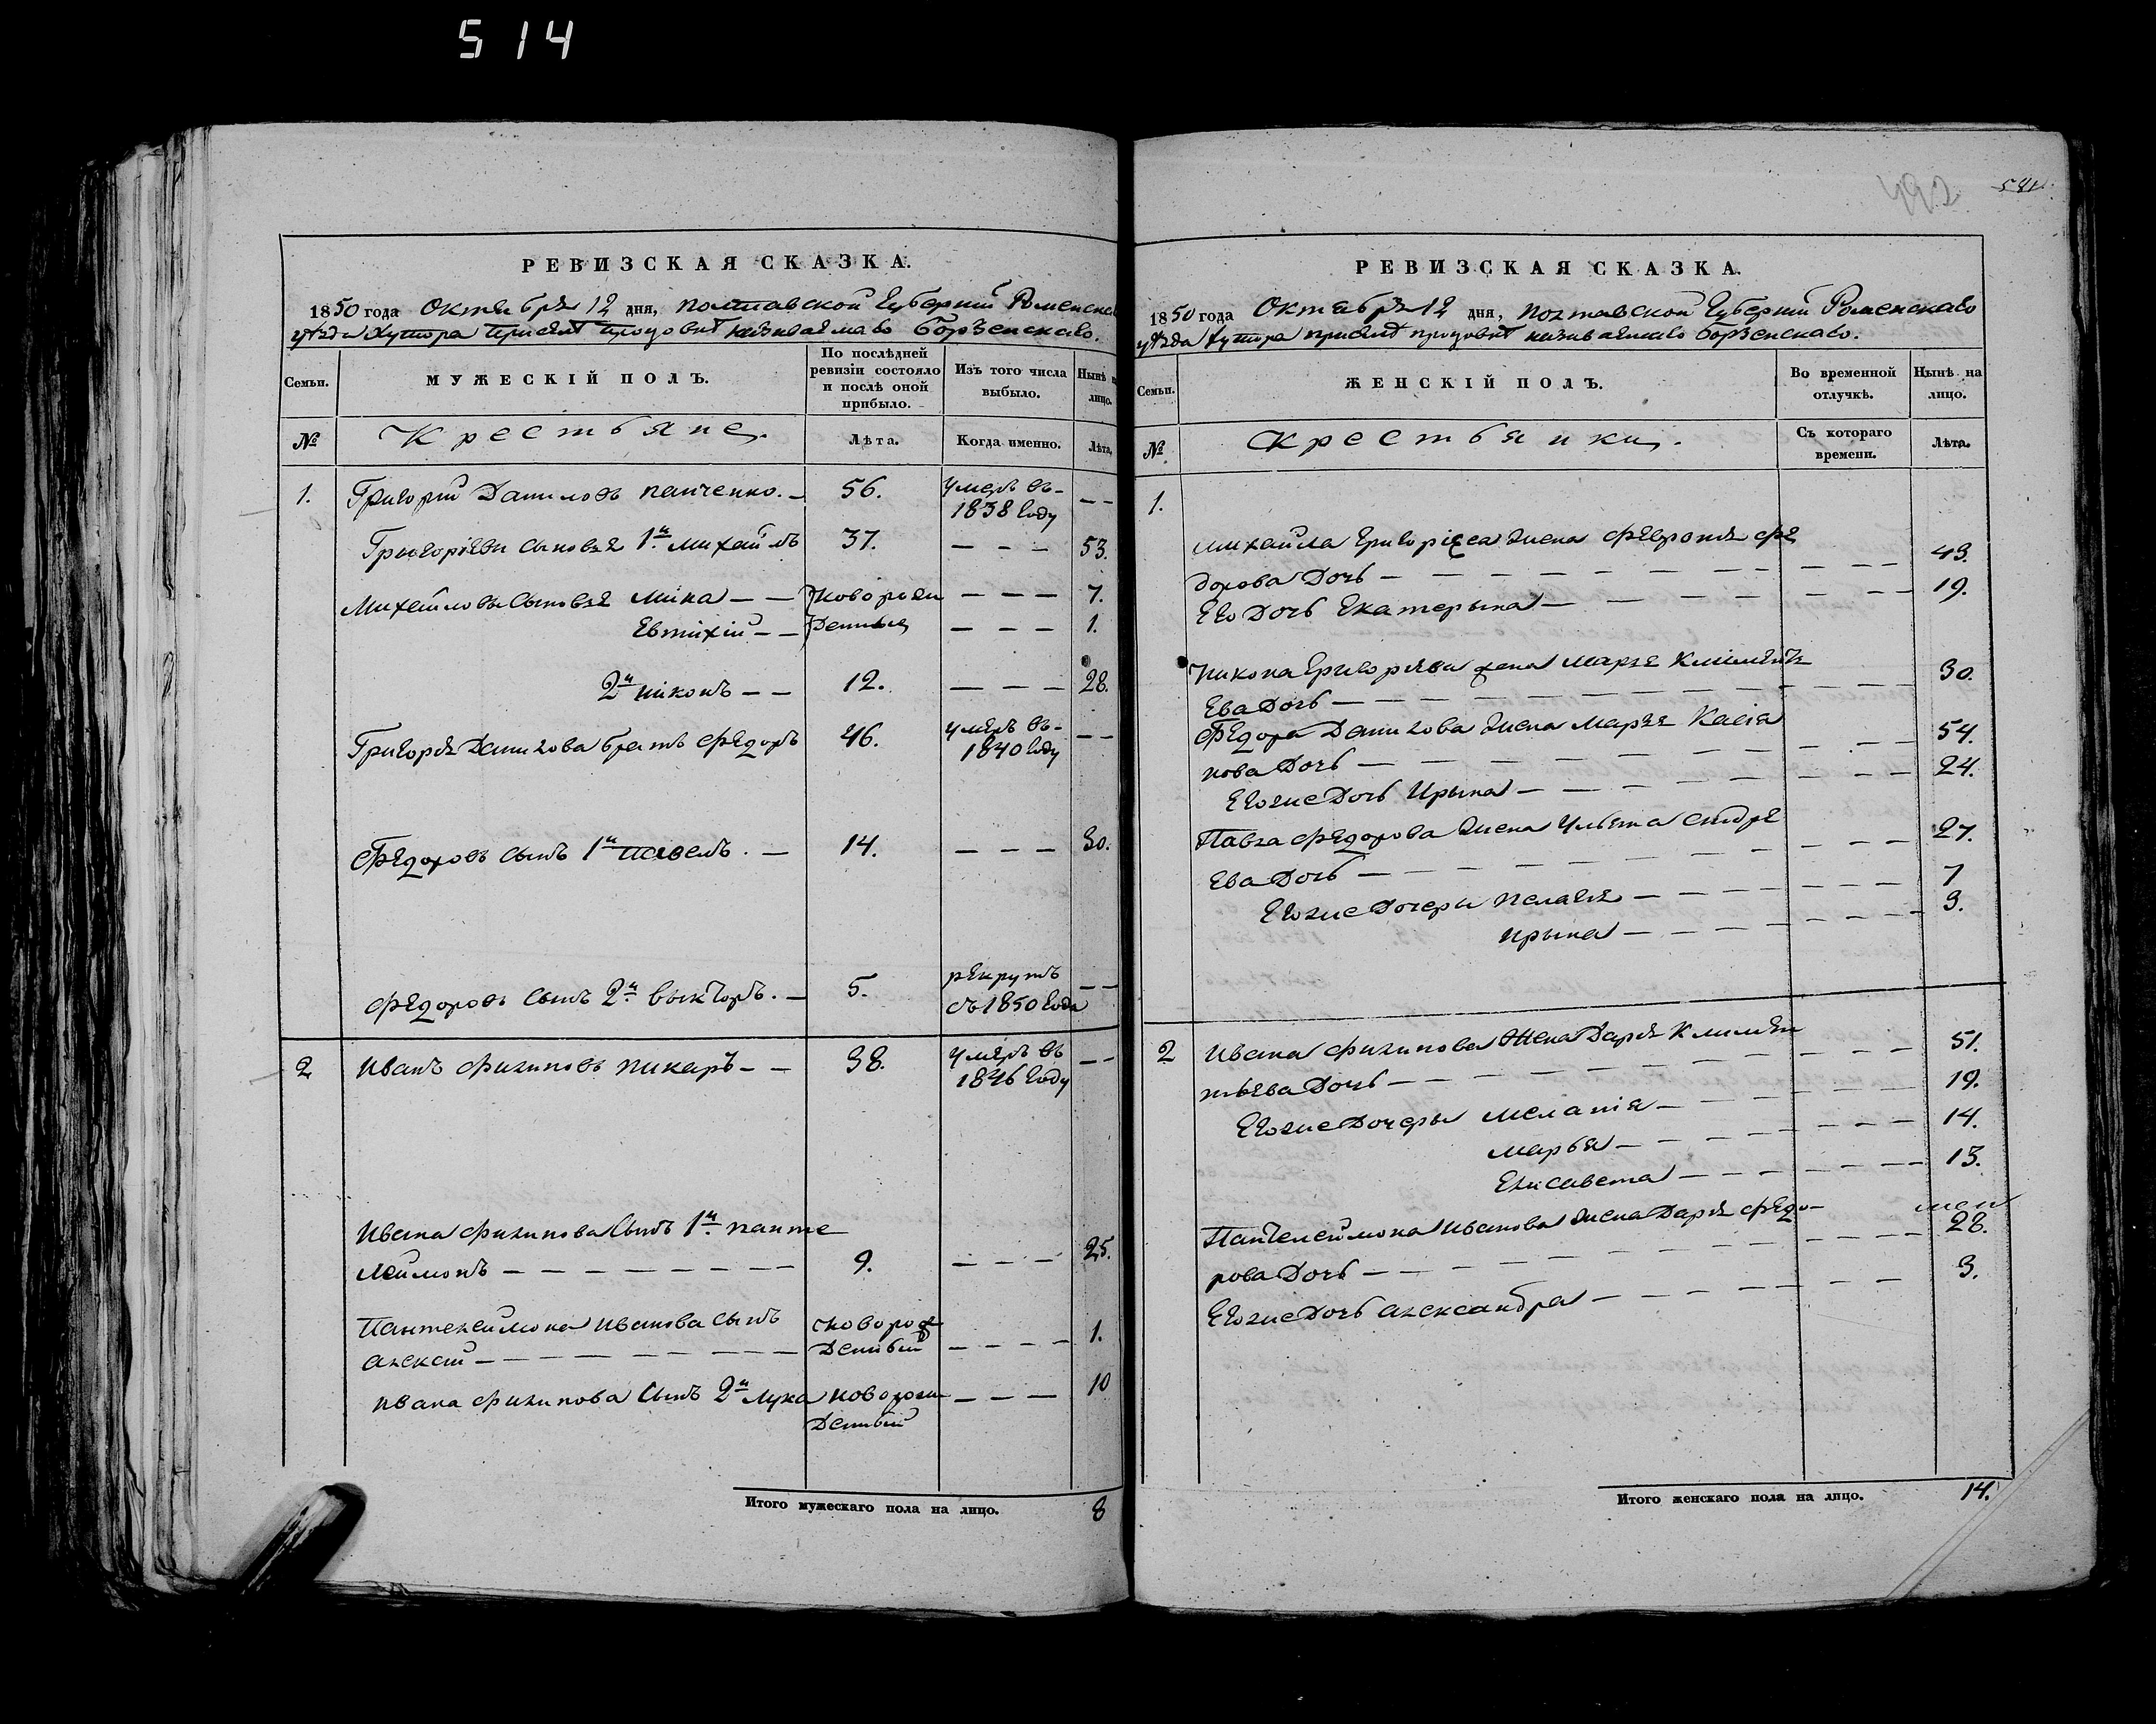 514
492
РЕВИЗСКАЯ СКАЗКА.
1850 года Октября 12 дня, Полтавской Губернии Роменска
уезда Хутора называемаго Борзенскаго.
Семьи.
МУЖЕСКІЙ ПОЛЪ.
По послѣдней ревизіи состояло и послѣ оной прибыло.
Изъ того числа выбыло.
Нынѣ н лицо.
№
Крестьяне.
Лѣта.
Когда именно.
Лѣта.
1. Григорий Даниловъ Панченко. — 56. Умеръ въ 1838 году — —
Григоріевы сыновья 1й Михайлъ 37. — — — 53.
Михайловы сыновья Мина — — новорож — — — 7.
Евтихій — — денные — — — 1.
2й Никонъ — — 12. — — — 28.
Григорія Данилова братъ Федоръ 46. Умеръ въ 1840 году — —
Федоровъ сынъ 1й Павелъ. — 14. — — — 30.
Федоровъ сынъ 2й Викторъ. — 5. рекрутъ съ 1850 года — —
2 Иванъ Филиповъ Пикаръ — — 38. Умеръ въ 1846 году — —
Ивана Филипова сынъ 1й Панте
леймонъ — — — — — — — — 9. — — — 25.
Пантелеймона Иванова сынъ новорож
Алексий — — — — — — — — денный — — — — 1.
Ивана Филипова сынъ 2й Лука новорож — — — 10
денный
Итого мужескаго пола на лицо. 8
РЕВИЗСКАЯ СКАЗКА.
1850 года Октября 12 дня, Полтавской Губернии Роменскаго
уезда Хутора называемаго Борзенскаго.
Семьи.
ЖЕНСКІЙ ПОЛЪ.
Во временной отлучкѣ.
Нынѣ на лицо.
№
Крестьянки.
Съ котораго времени.
Лѣта.
1.
Михайла Григоріева жена Феврония Фе
дорова дочь — — — — — — 43.
Его дочь Екатерына — — — — — 19.
Никона Григорьева жена Марья Климентъ
ева дочь — — — — — — 30.
Федора Данилова жена Марья Касіа
нова дочь — — — — — — 54.
Его же дочь Ирына — — — — — 24.
Павла Федорова жена Ульяна Сидре
ева дочь — — — — — — 27.
Его же дочеры Пелагея — — — — 7
Ирына — — — — 3.
2 Ивана Филипова жена Дарья Климен
тьева дочь — — — — — — 51.
Его же дочеры Мелания — — — — 19.
Марья — — — — 14.
Елисавета — — — — 13.
Пантелеймона Иванова жена Дарья Федо-
рова дочь — — — — — — 28.
Его же дочь Александра — — — — 3.
Итого женскаго пола на лицо. 14.